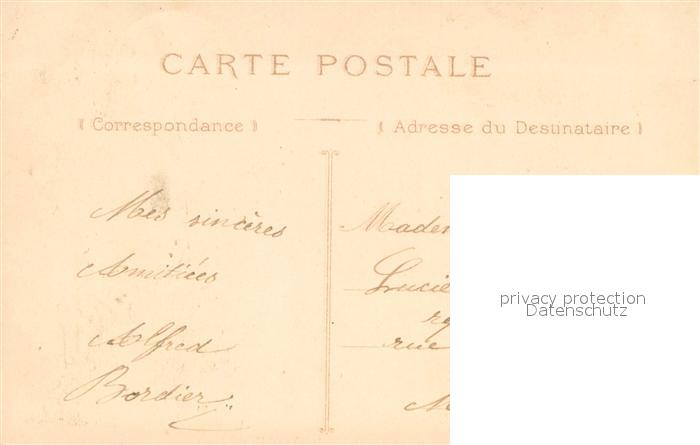 CARTE POSTALE
( Correspondance )
( Adresse du Destinataire )
Mes sincères
Amitiées
Alfred
Bordier
Madem
Lucie
rue
privacy protection
Datenschutz